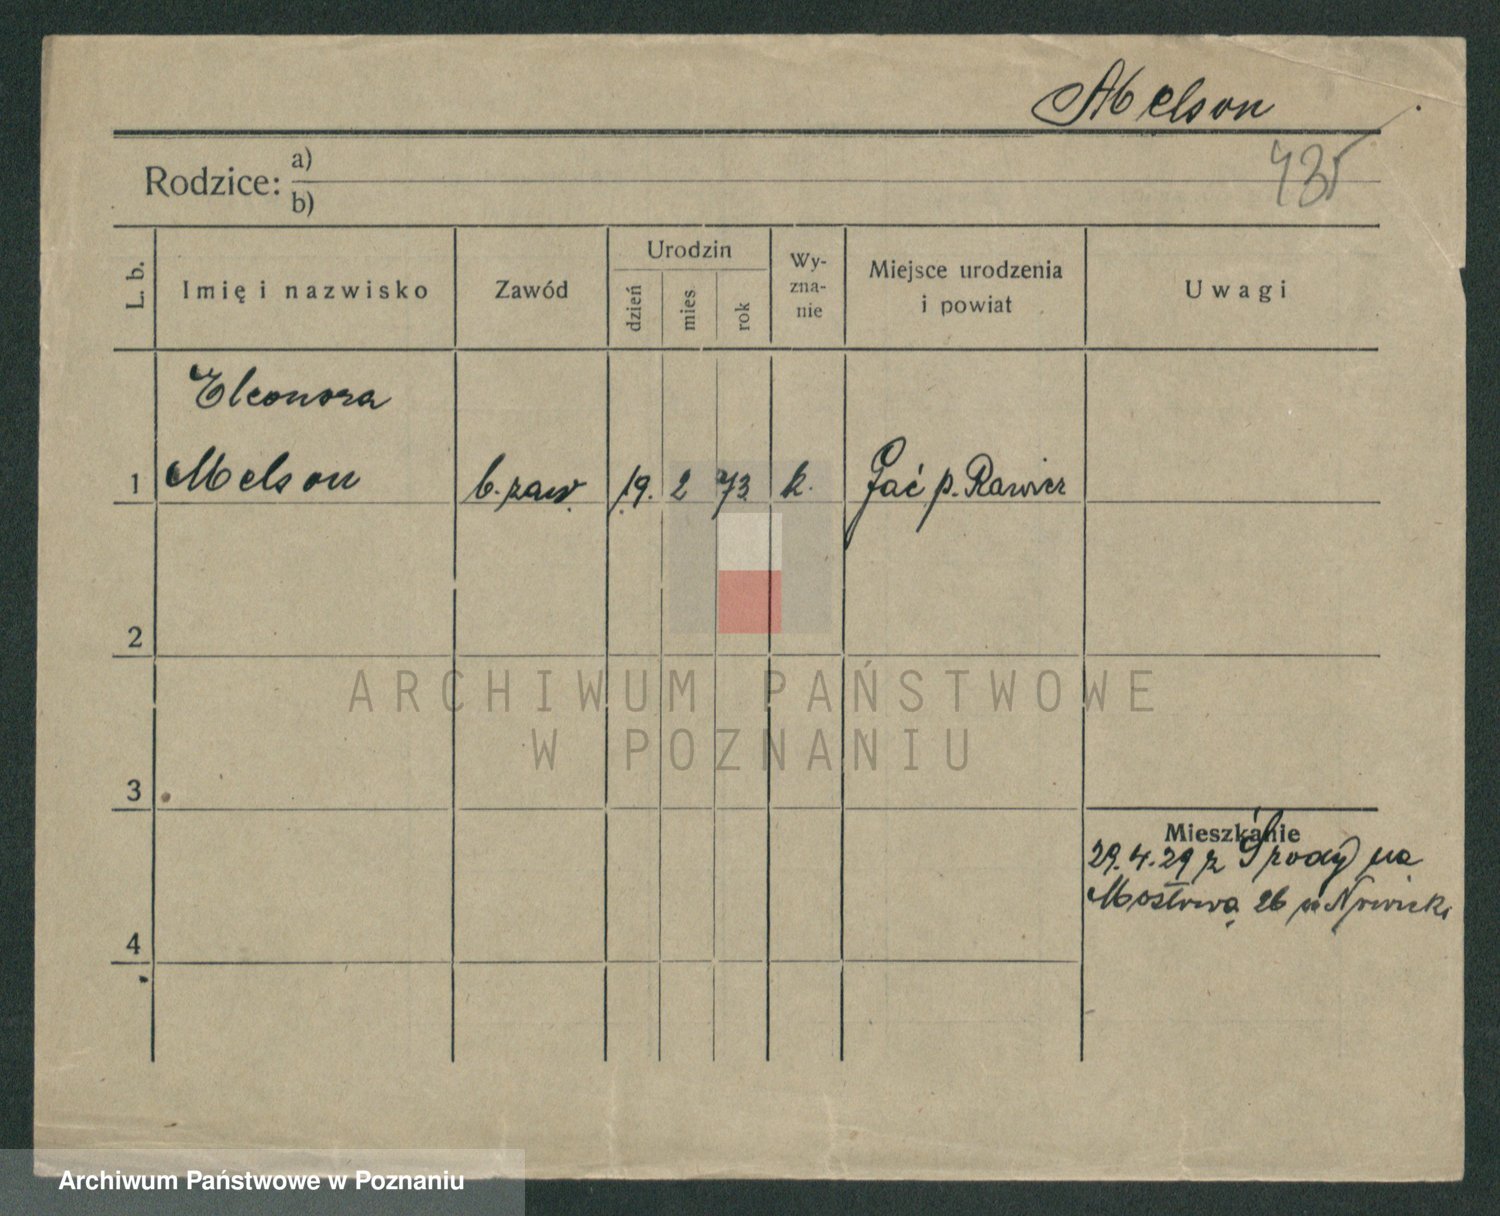 Melson
Rodzice: a)
b)
L. b.
Imię i nazwisko
Zawód
Urodzin
dzień
mies
rok
Wy-
zna-
nie
Miejsce urodzenia
i powiat
Uwagi
Eleonora
1 Melson b. zaw. 19. 2 73 k. Gać p. Rawicz
2
ARCHIWUM PAŃSTWOWE
W POZNANIU
3
Mieszkanie
29.4.29 z Środy na
Mostową 26
4
Archiwum Państwowe w Poznaniu